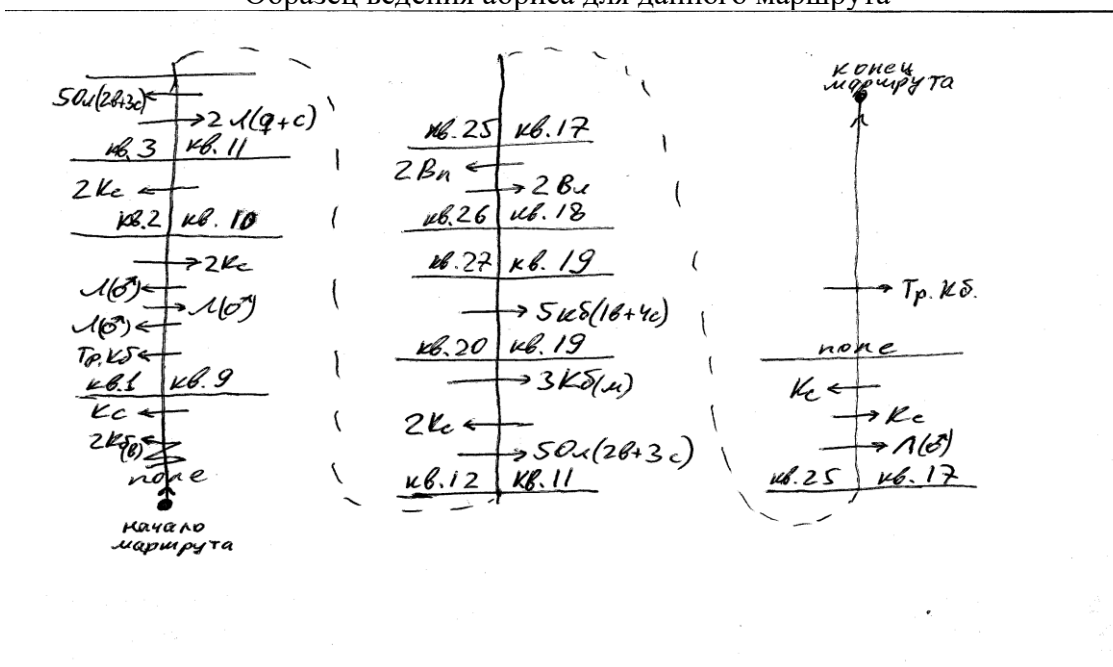 Образец ведения абриса для данного маршрута
5Ол(2в+3с)
2Л(q+с)
кв.3 кв.11
2Кс
кв.2 кв.10
2Кс
Л(♂)
Л(♂)
Л(♂)
Тр.Кб
кв.1 кв.9
Кс
2Кб(в)
поле
начало
маршрута
кв.25 кв.17
2Вп
2Вл
кв.26 кв.18
кв.27 кв.19
5кб(1в+4с)
кв.20 кв.19
3Кб(м)
2Кс
5Ол(2в+3с)
кв.12 кв.11
конец
маршрута
Тр.Кб.
поле
Кс
Кс
Л(♂)
кв.25 кв.17